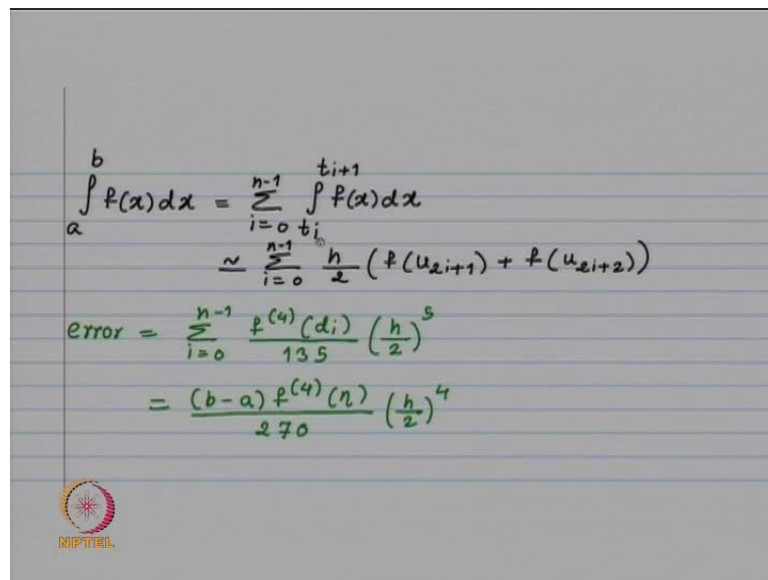 b
∫ f(x) dx = Σ_{i=0}^{n-1} ∫_{t_i}^{t_{i+1}} f(x) dx
a
≃ Σ_{i=0}^{n-1} h/2 ( f(u_{2i+1}) + f(u_{2i+2}) )
error = Σ_{i=0}^{n-1} f^{(4)}(d_i)/135 (h/2)^5
= (b-a) f^{(4)}(η)/270 (h/2)^4
NPTEL